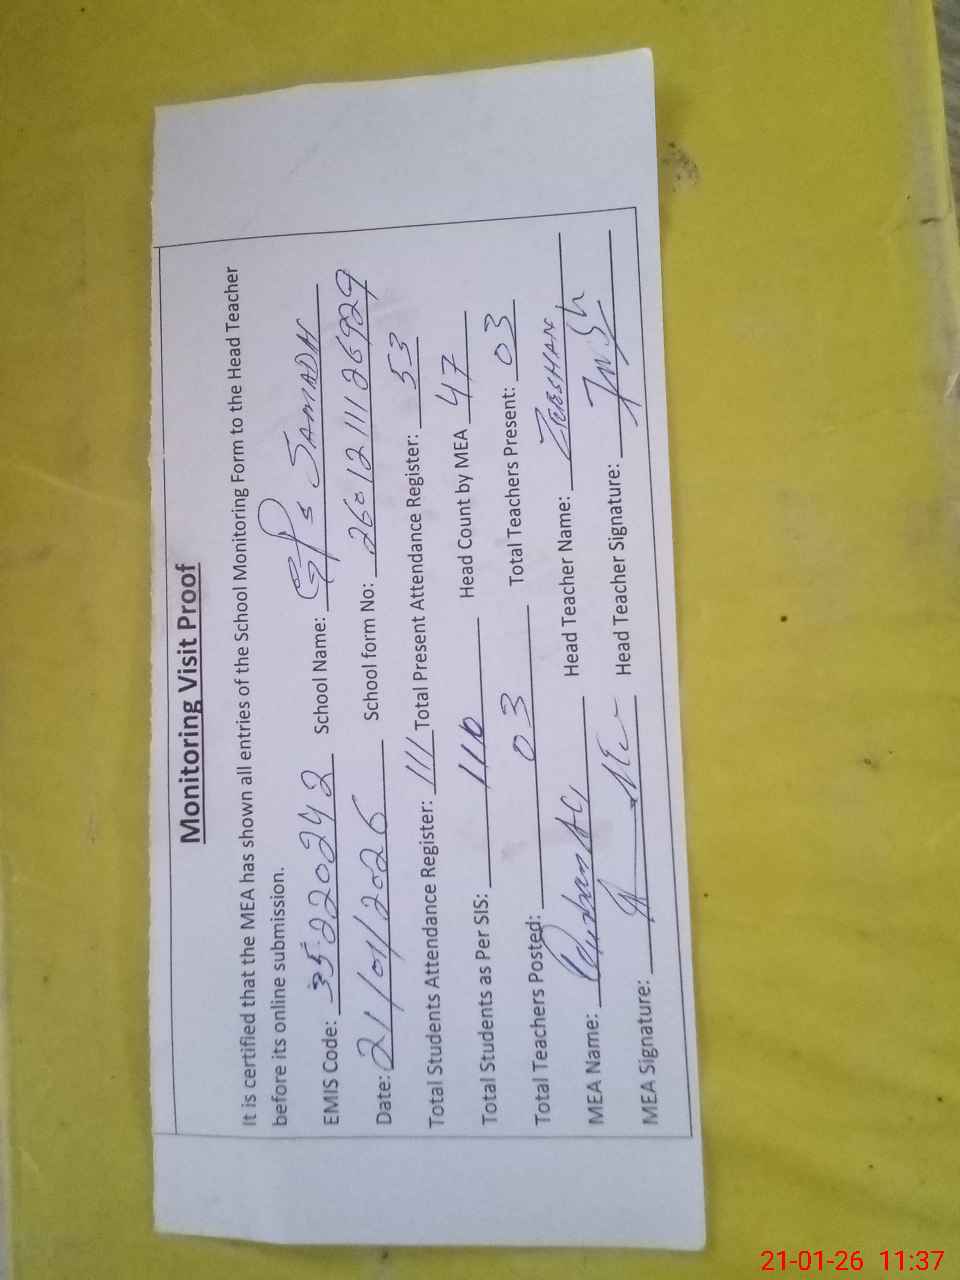 Monitoring Visit Proof
It is certified that the MEA has shown all entries of the School Monitoring Form to the Head Teacher
before its online submission.
EMIS Code: 35220242 School Name: GPS SAMADH
Date: 21/01/2026 School form No: 26012111126929
Total Students Attendance Register: 111 Total Present Attendance Register: 53
Total Students as Per SIS: 110 Head Count by MEA 47
Total Teachers Posted: 03 Total Teachers Present: 03
MEA Name: Head Teacher Name: ZEESHAN
MEA Signature: Head Teacher Signature:
21-01-26 11:37